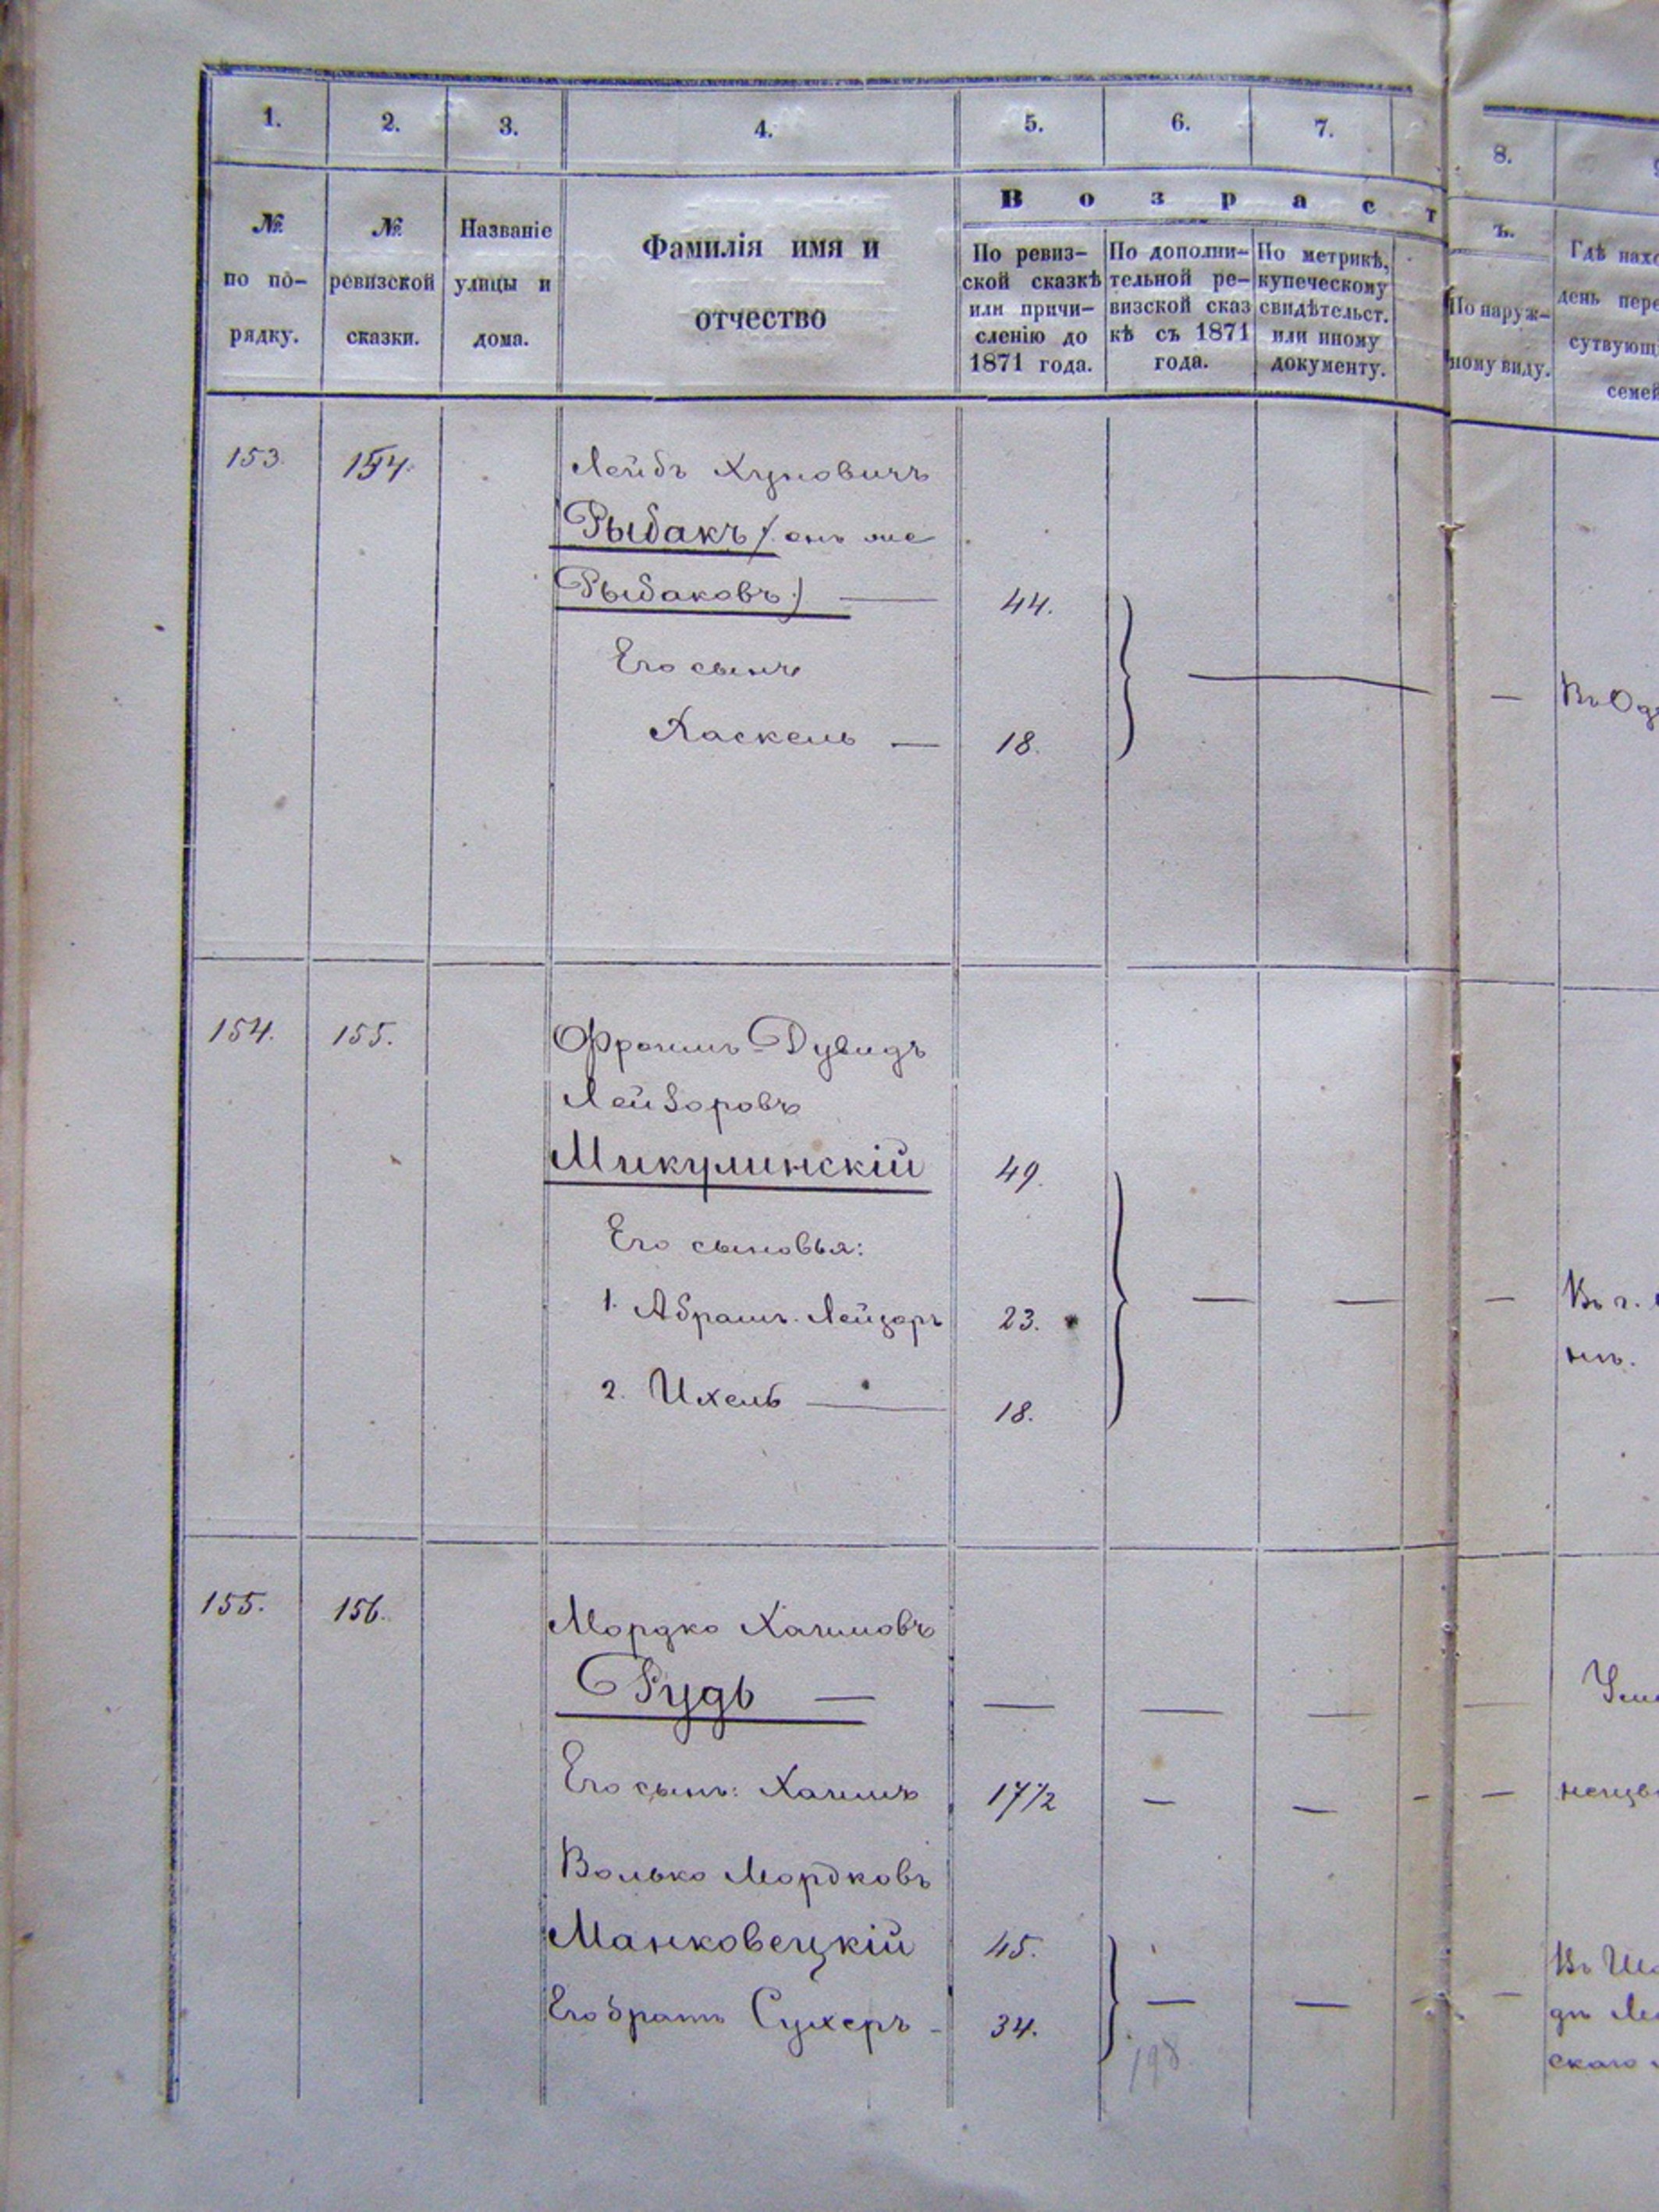 1. 2. 3. 4. 5. 6. 7. 8.
Возрастъ.
№ по по-рядку.
№ ревизской сказки.
Названіе улицы и дома.
Фамилія имя и
отчество
По ревиз-
ской сказкѣ
или причи-
сленію до
1871 года.
По дополни-
тельной ре-
визской сказ
кѣ съ 1871
года.
По метрикѣ,
купеческому
свидѣтельст.
или иному
документу.
По наруж-
ному виду.
Гдѣ нахо
день пере
сутвующі
семей
153. 154. Лейбъ Хуновичъ
Рыбакъ (онъ же
Рыбаковъ) — 44.
Его сынъ
Хаскель — 18. — — Въ Од
154. 155. Фроимъ-Дувидъ
Лейзоровъ
Микулинскій 49.
Его сыновья:
1. Абрамъ-Лейзоръ 23. — — — Въ г.
2. Ихель — 18.
нъ.
155. 156. Мордко Хаимовъ
Рудь — — — — —
Его сынъ: Хаимъ 17½ — — - —
Волько Мордковъ
Манковецкій 45.
Его братъ Сухеръ - 34. — — - —
198.
скаго